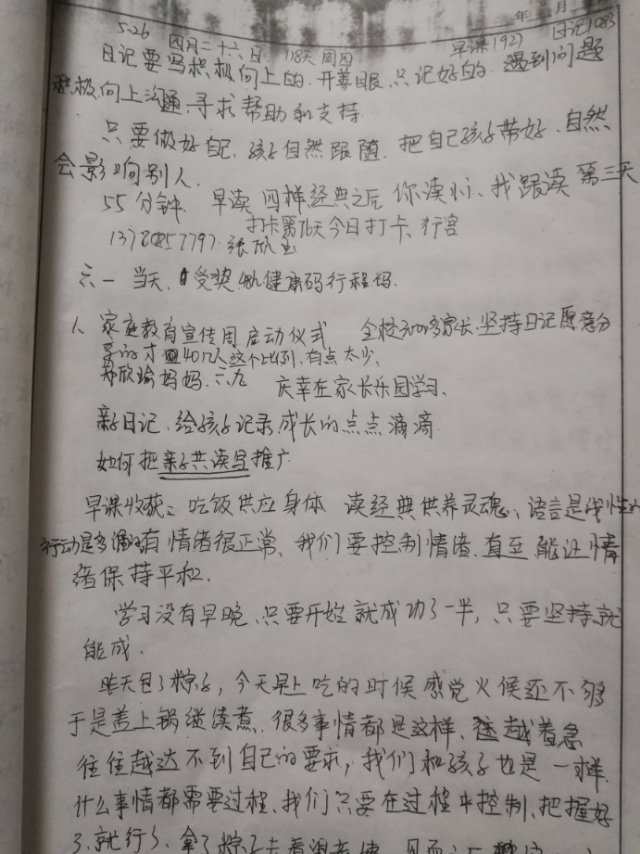 年 月
5.26 四月二十六日 118天 周四 早课1927 日记1083
日记要写积极向上的.开善眼.只记好的.遇到问题
积极向上沟通.寻求帮助和支持
只要做好自己.孩子自然跟随.把自己孩子带好.自然
会影响别人.
55分钟.早读 四样经典之后 你读、我跟读 第三天
打卡第76天今日打卡、行宫
张欣
六一 当天、受奖 健康码行程码.
家庭教育宣传周启动仪式 全校3000多家长.坚持日记愿意分
享的才40几人这个比例.有点太少.
欣瑜妈妈.六九 庆幸在家长乐园学习、
亲子日记.给孩子记录成长的点点滴滴
如何把亲子共读写推广
早课收获:吃饭供应身体 读经典供养灵魂、语言是
行动是 有情绪很正常、我们要控制情绪.直至能让情
绪保持平和.
学习没有早晚、只要开始就成功了一半,只要坚持就
能成.
昨天包了粽子,今天早上吃的时候感觉火候还不够
于是盖上锅继续煮.很多事情都是这样、越着急
往往越达不到自己的要求,我们和孩子也是一样.
什么事情都需要过程、我们只要在过程中控制、把握好
了、就行了、拿了粽子去看望老